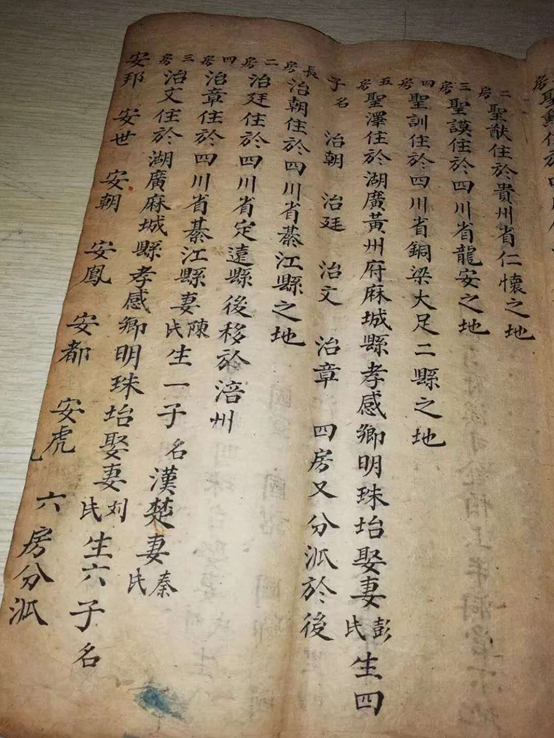 二房聖猷住於貴州省仁懷之地
三房聖謨住於四川省龍安之地
四房聖訓住於四川省銅梁大足二縣之地
五房聖澤住於湖廣黃州府麻城縣孝感鄉明珠坮娶妻彭氏生四
子名 治朝 治廷 治文 治章 四房又分派於後
長房治朝住於四川省綦江縣之地
二房治廷住於四川省定遠縣後移於涪州
四房治章住於四川省綦江縣妻陳氏生一子名漢楚妻秦氏
三房治文住於湖廣麻城縣孝感鄉明珠坮娶妻刘氏生六子名
安邦 安世 安朝 安鳳 安都 安虎 六房分派